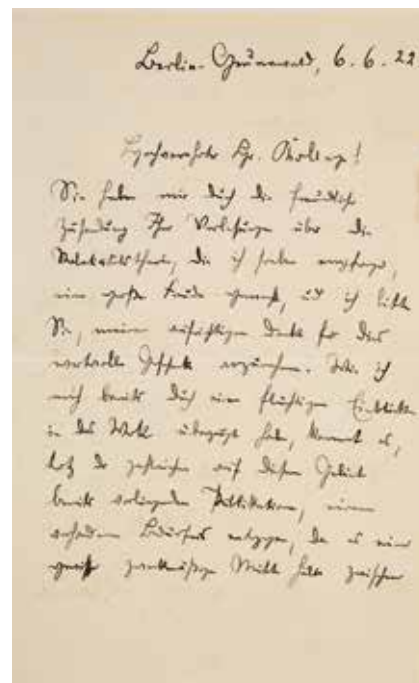 Berlin-Grunewald, 6.6.22
Hochverehrter Hr. Kollege!
Sie haben mir durch die freundliche
Zusendung Ihrer Vorlesungen über die
Relativitätstheorie, die ich soeben empfange,
eine große Freude gemacht, und ich bitte
Sie, meinen aufrichtigen Dank für das
wertvolle Geschenk anzunehmen. Wie ich
mich bereits durch einen flüchtigen Einblick
in das Werk überzeugt habe, kommt es,
trotz der zahlreichen auf diesem Gebiet
bereits vorliegenden Publikationen, einem
Bedürfnis entgegen, da es eine
gewisse zweckmäßige Mitte hält zwischen